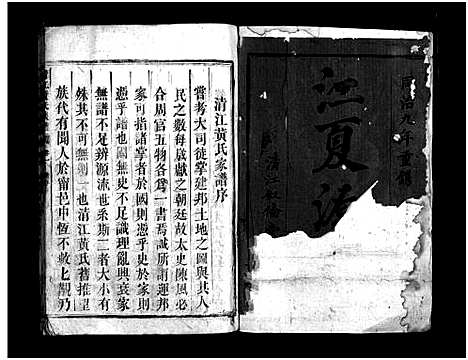 同治九年重鐫
江夏
清江黃氏家譜序
嘗考大司徒掌建邦土地之圖與其人
民之數每歲獻之朝廷故太史陳風必
合周官五物各為一書焉誠所謂運邦
家可指諸掌者於國則憑乎史於家則
憑乎譜也國無史不足識理亂興衰家
無譜不足辨源流世系斯二者大小有
殊其不可無則一也清江黃氏舊推望
族代有聞人於甯邑申恆不敘上朔乃